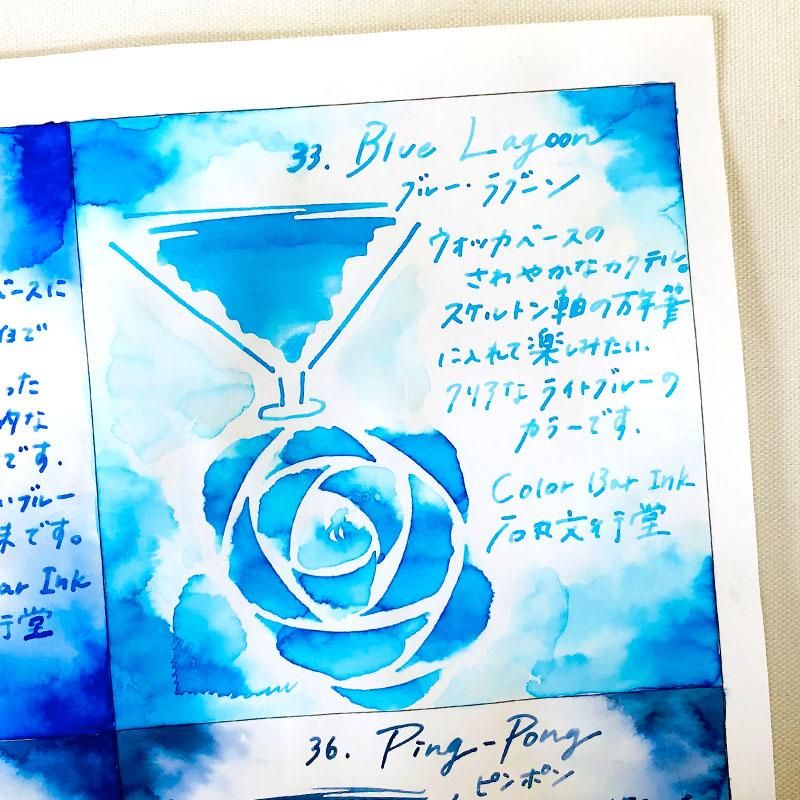 33. Blue Lagoon
ブルー・ラグーン
ウォッカベースの
さわやかなカクテル。
スケルトン軸の万年筆
に入れて楽しみたい、
クリアな ライトブルーの
カラーです.
Color Bar Ink
石丸文行堂
ベースに
った
的な
です.
いブルー
です。
ar Ink
行堂
36. Ping-Pong
ピンポン